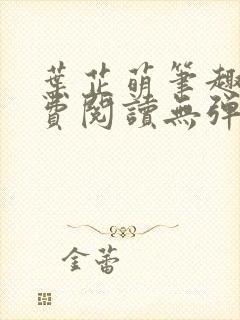 葉芷萌筆趣
費閱讀無彈
金蕾